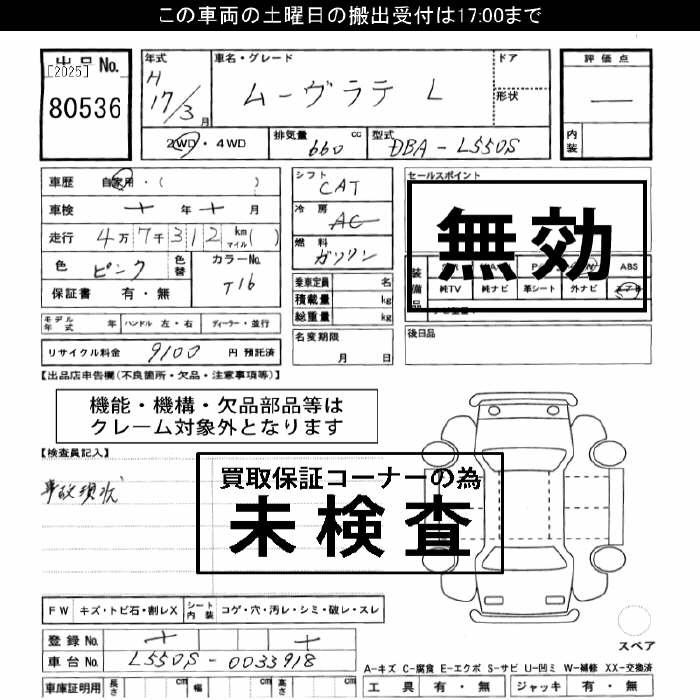 この車両の土曜日の搬出受付は17:00まで
出品No.
[2025]
80536
年式
H
17/3月
車名・グレード
ムーヴラテ L
ドア
形状
評価点
―
内装
2WD・4WD
排気量 660 cc
型式 DBA-L550S
車歴 自家用・( )
車検 年 月
走行 4万7千312 km マイル ( )
色 ピンク
色替
カラーNo. T16
保証書 有・無
シフト
CAT
冷房
AC
燃料
ガソリン
乗車定員 名
積載量 kg
総重量 kg
セールスポイント
無効
装備品
ABS
純TV 純ナビ 革シート 外ナビ
モデル年式 年 ハンドル 左・右 ディーラー・並行
名変期限
月 日
後日品
リサイクル料金 9100 円 預託済
【出品店申告欄(不良箇所・欠品・注意事項等)】
機能・機構・欠品部品等は
クレーム対象外となります
【検査員記入】
事故現状
買取保証コーナーの為
未検査
FW キズ・トビ石・割レX シート内装 コゲ・穴・汚レ・シミ・破レ・スレ
登録No.
車台No. L550S-0033918
スペア
A-キズ C-腐食 E-エクボ S-サビ U-凹ミ W-補修 XX-交換済
車庫証明用 長さ cm 幅 cm 高さ cm
工具 有・無 ジャッキ 有・無